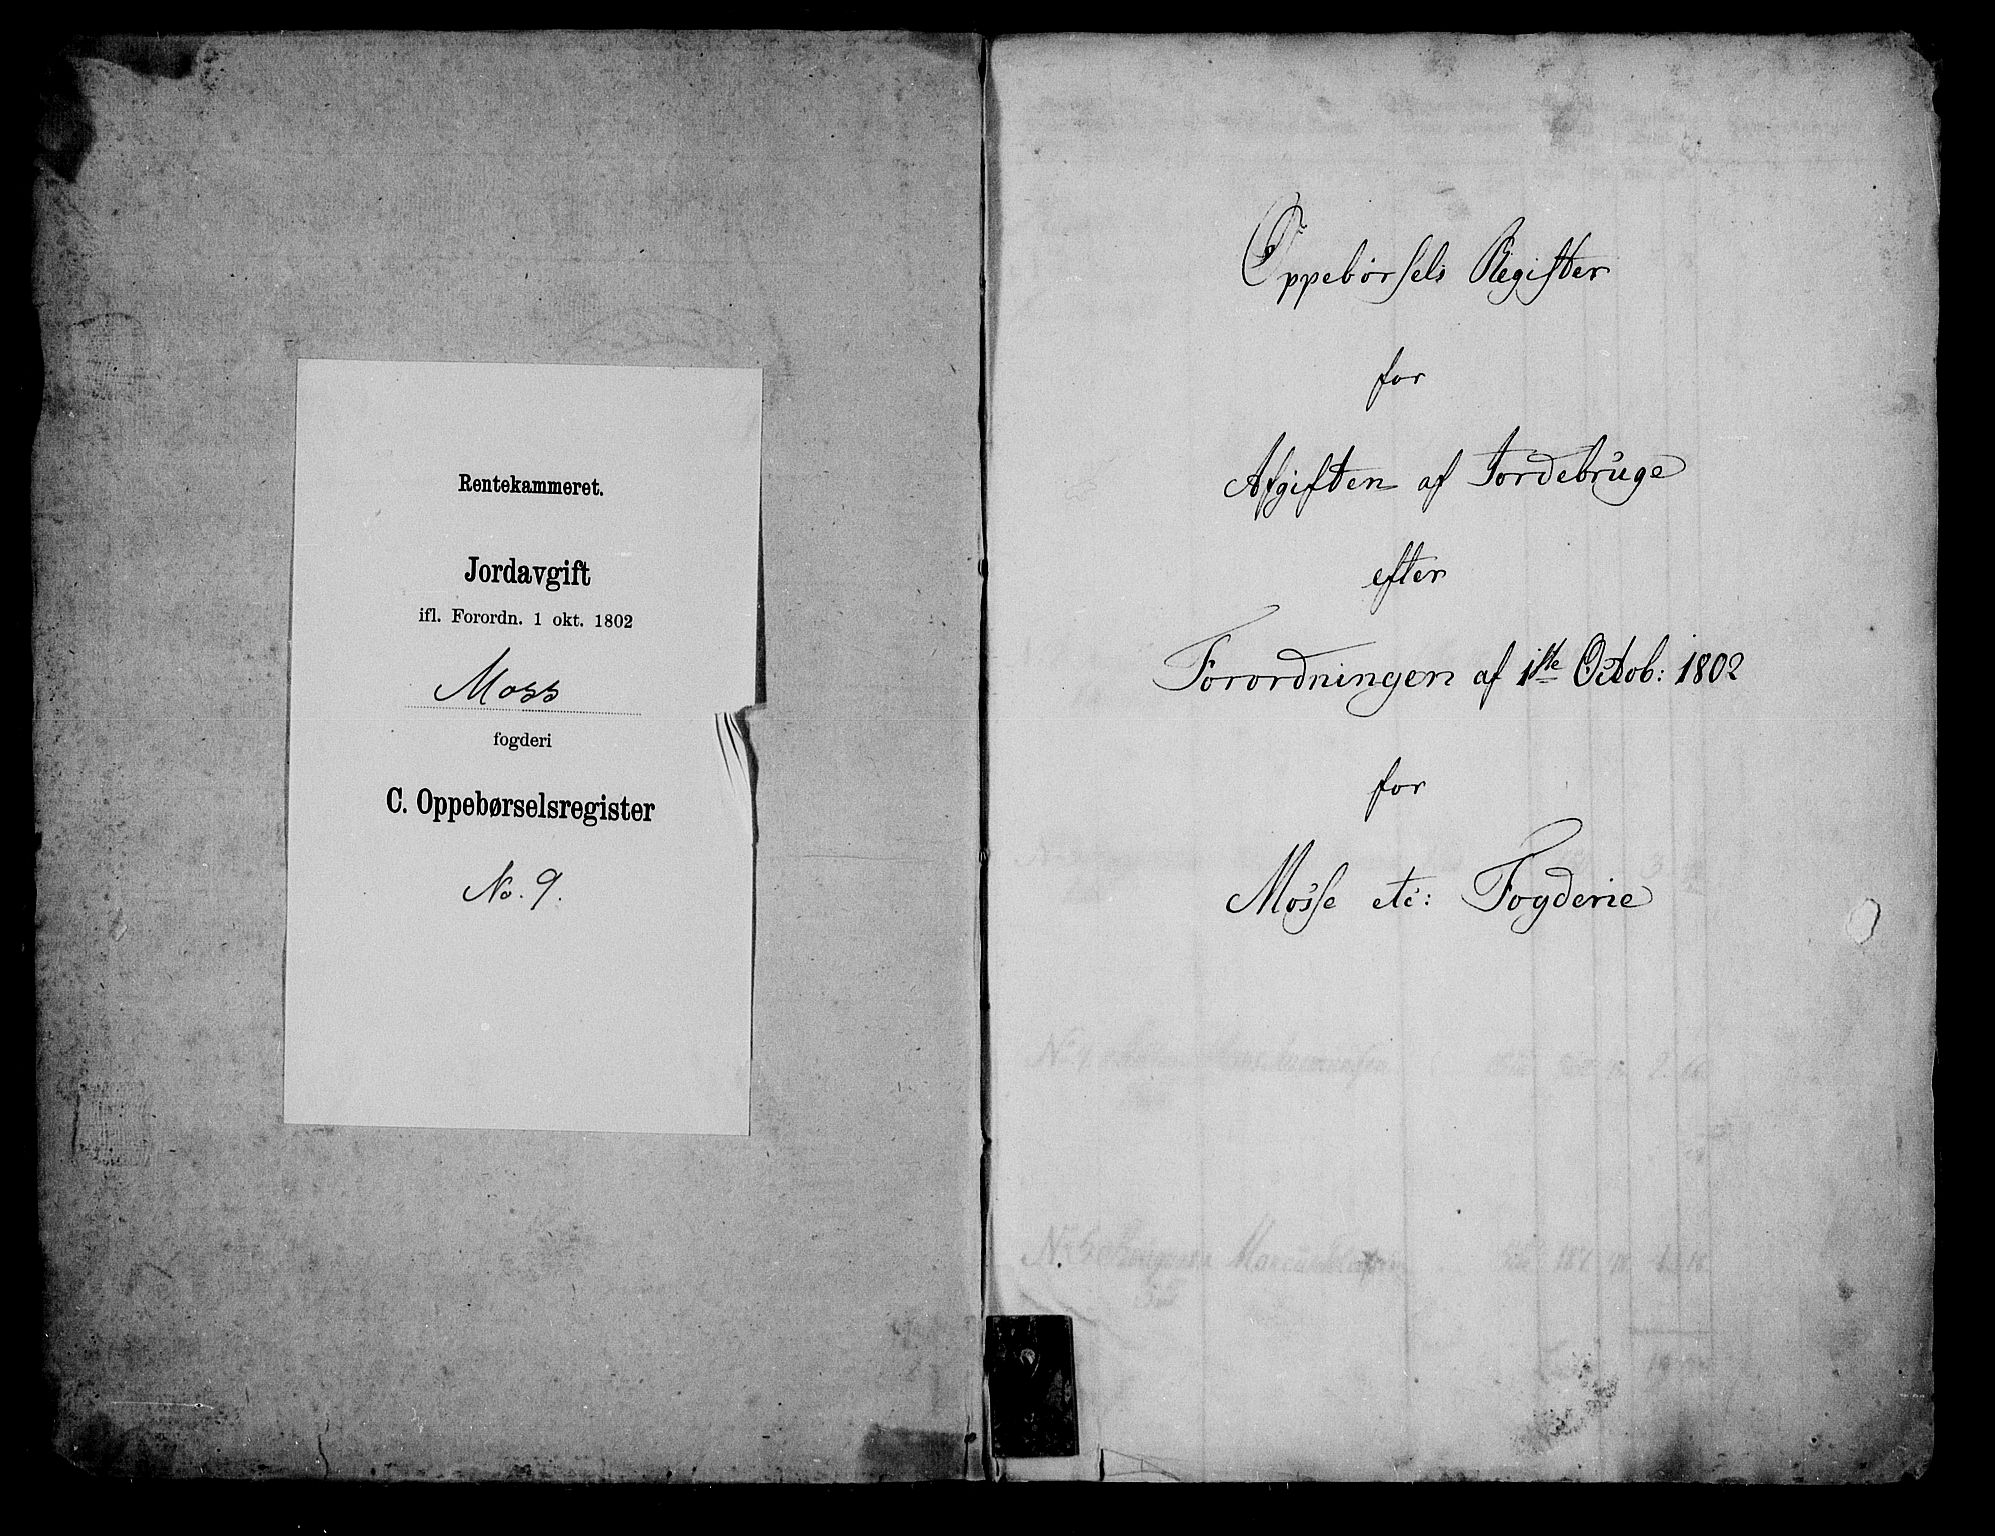 Rentekammeret.
Jordavgift
ifl. Forordn. 1 okt. 1802
Moss
fogderi
C. Oppebørselsregister
No. 9.
Oppebørsels Register
for
Afgiften af Jordebruge
efter
Forordningen af 1ste Octob: 1802
for
Mosse etc: Fogderie